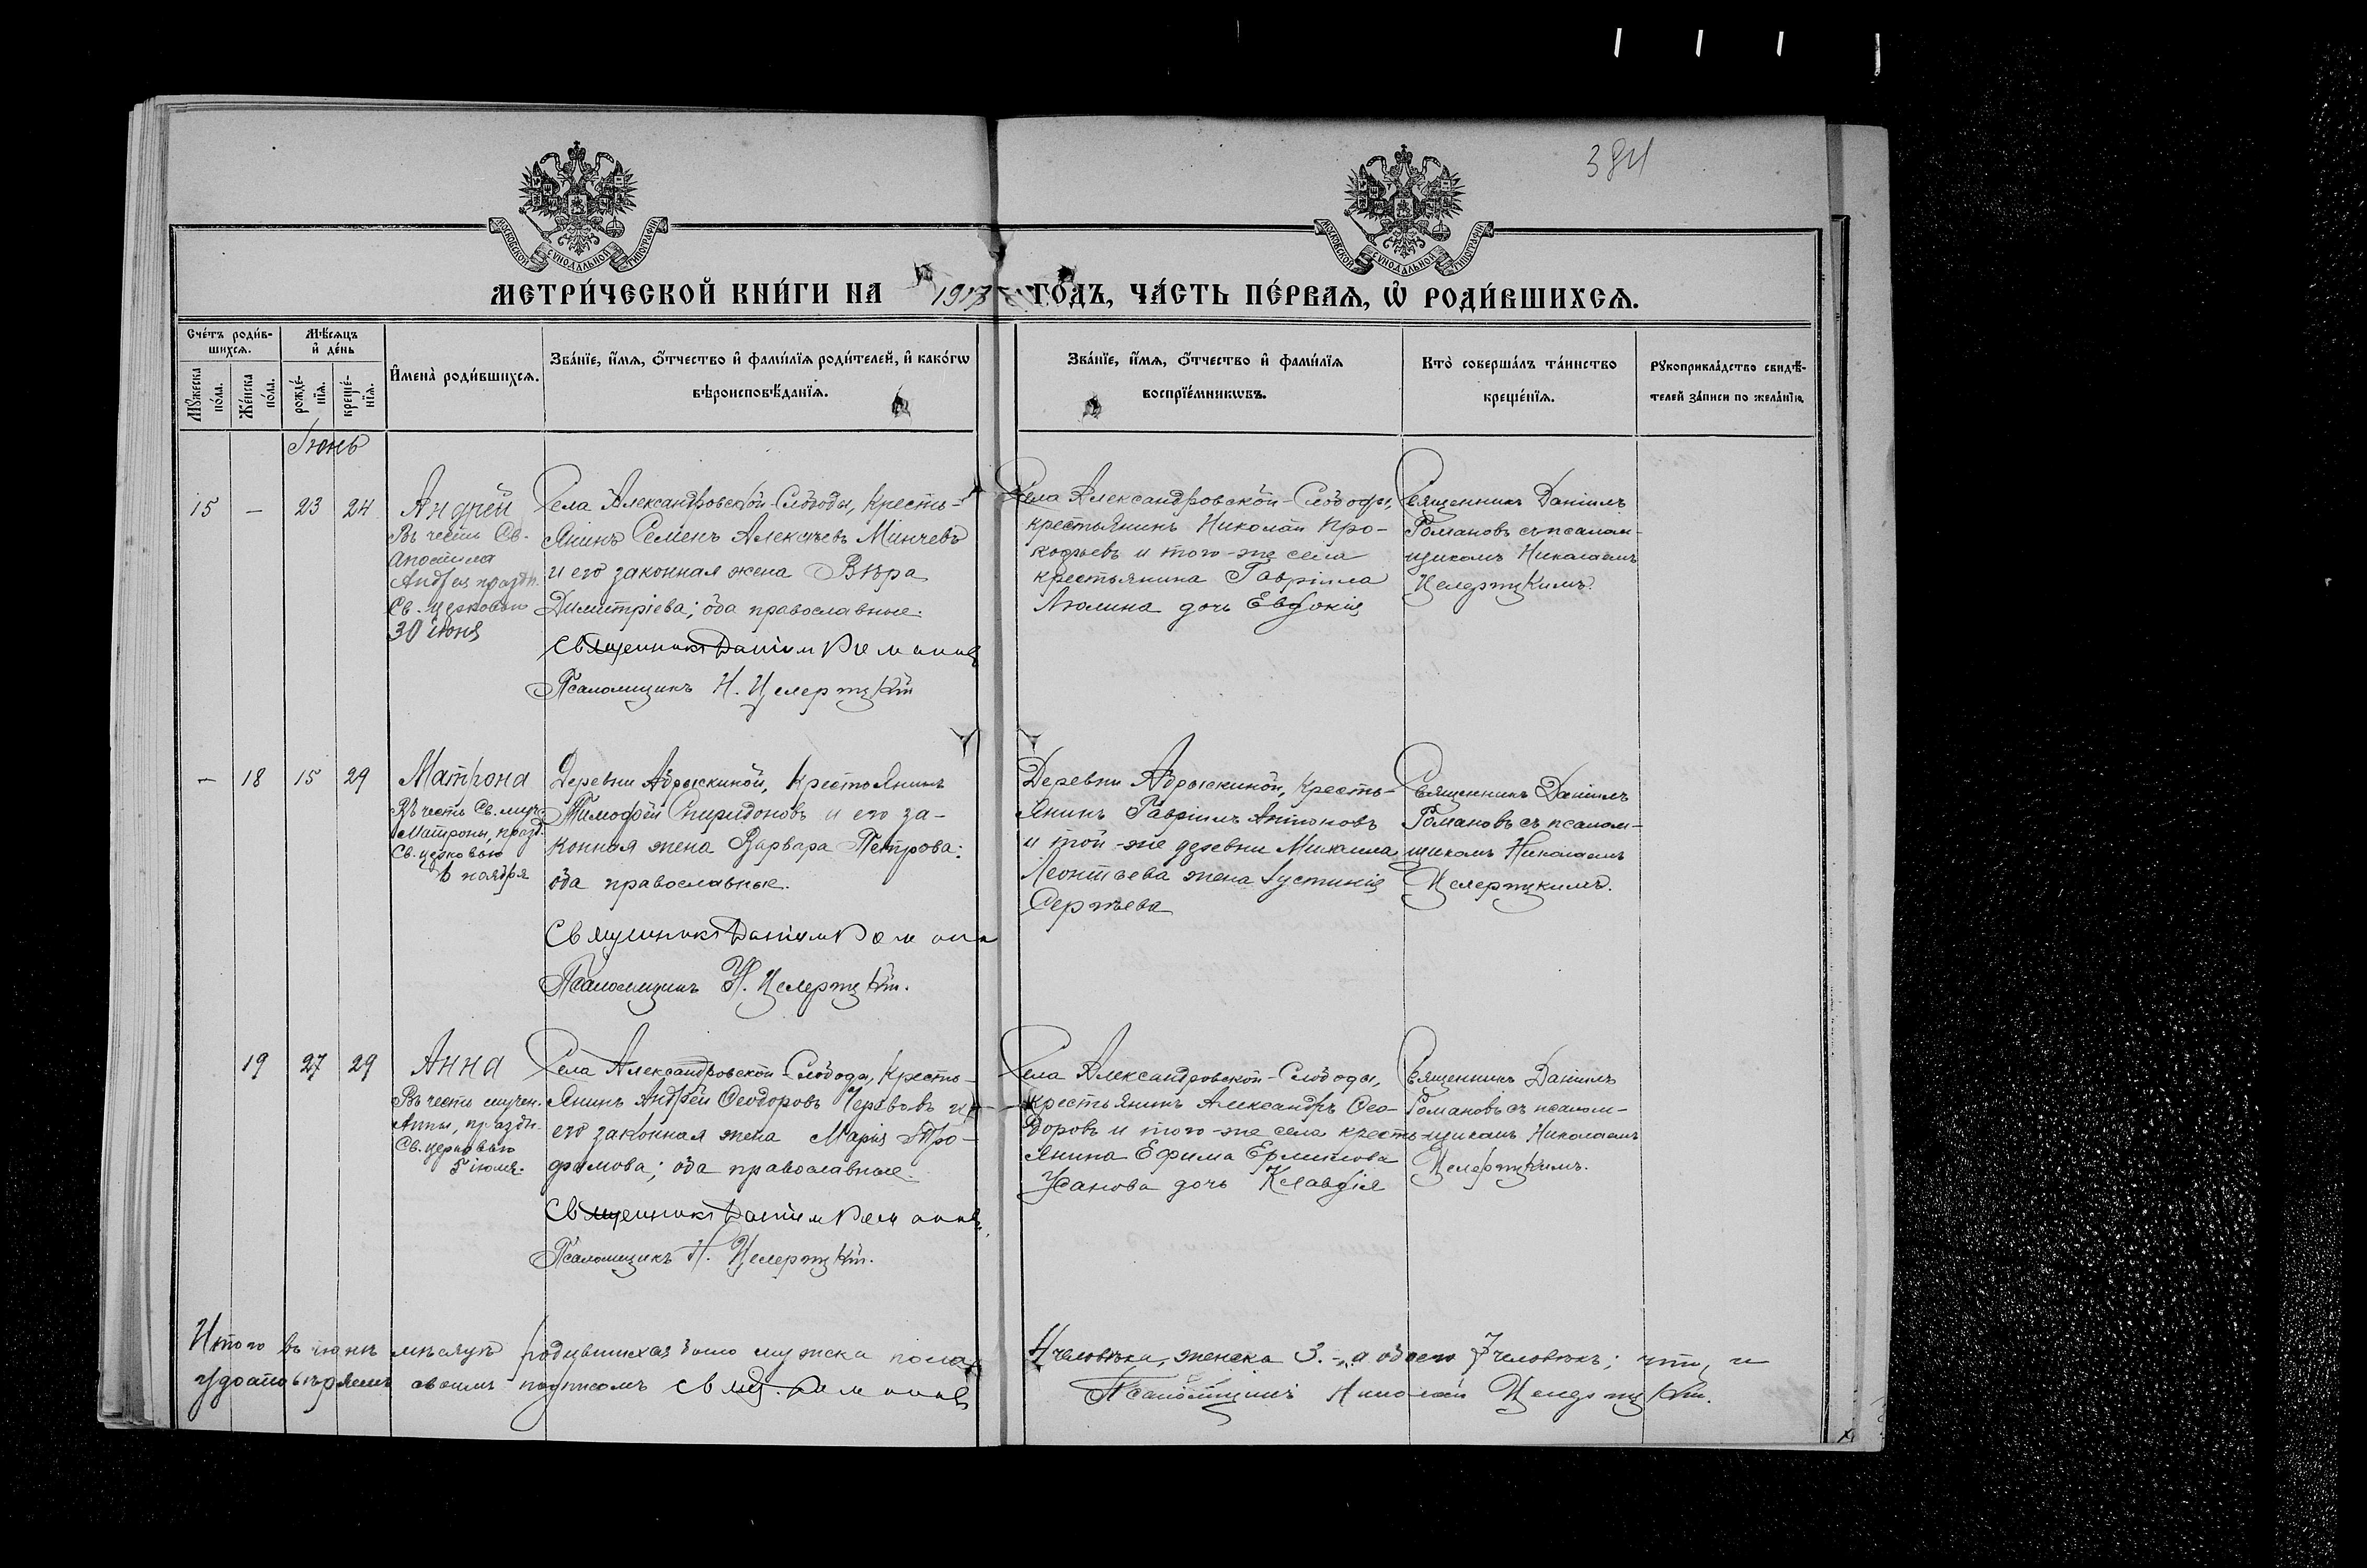 384
МОСКОВСКОЙ СѴНОДАЛЬНОЙ ТИПОГРАФІИ
МОСКОВСКОЙ СѴНОДАЛЬНОЙ ТИПОГРАФІИ
МЕТРИ́ЧЕСКОЙ КНИ́ГИ НА 1917 ГО́ДЪ, ЧА́СТЬ ПЕ́РВАѦ, Ѽ РОДИ́ВШИХСѦ.
Сче́тъ роди́в-
шихсѧ.
Мꙋжеска по́ла.
Же́нска по́ла.
Мѣ́сѧцъ и҆ де́нь
рожде́-
нїѧ.
креще́-
нїѧ.
И҆мена̀ роди́вшихсѧ.
Зва́нїе, и҆́мѧ, ѻ҆́тчество и҆ фами́лїѧ роди́телей, и҆ како́гѡ
вѣроисповѣ́данїѧ.
Зва́нїе, и҆́мѧ, ѻ҆́тчество и҆ фами́лїѧ
воспрїе́мникѡвъ.
Кто̀ соверша́лъ та́инство
креще́нїѧ.
Рꙋкоприкла́дство свидѣ́-
телей за́писи по жела́нїю.
Іюнь
15 — 23 24
Андрей
Въ честь Св.
Апостола
Андрея праздн.
Св. церковью
30 іюня
Села Александровской-Слободы, кресть-
янинъ Семенъ Алексѣевъ Минчевъ
и его законная жена Вѣра
Димитріева; оба православные.
Священникъ Даніилъ Романовъ
Псаломщикъ Н. Целертцкій
Села Александровской-Слободы,
крестьянинъ Николай Про-
кофьевъ и того-же села
крестьянина Гавріила
Люлина дочь Евдокія
Священникъ Даніилъ
Романовъ съ псалом-
щикомъ Николаемъ
Целертцкимъ.
— 18 15 29
Матрона
Въ честь Св. муч.
Матроны, празд.
Св. церковью
6 ноября
Деревни Абрыскиной, крестьянинъ
Тимофей Спиридоновъ и его за-
конная жена Варвара Петрова:
оба православные.
Священникъ Даніилъ Романовъ
Псаломщикъ Н. Целертцкій.
Деревни Абрыскиной, кресть-
янинъ Гавріилъ Антоновъ
и той-же деревни Михаила
Леонтьева жена Іустинія
Сергѣева
Священникъ Даніилъ
Романовъ съ псалом-
щикомъ Николаемъ
Целертцкимъ.
19 27 29
Анна
Въ честь мучен.
Анны, праздн.
Св. церковью
5 іюля.
Села Александровской-Слободы, кресть-
янинъ Андрей Ѳеодоровъ и
его законная жена Марія Тро-
фимова; оба православные.
Священникъ Даніилъ Романовъ.
Псаломщикъ Н. Целертцкій.
Села Александровской-Слободы,
крестьянинъ Александръ Ѳео-
доровъ и того-же села кресть-
янина Ефима Ермилова
Усанова дочь Клавдія
Священникъ Даніилъ
Романовъ съ псалом-
щикомъ Николаемъ
Целертцкимъ.
Итого въ іюнѣ мѣсяцѣ родившихся было мужска пола 4 человѣка, женска 3.-, а обоего 7 человѣкъ; что, и
удостовѣряемъ своимъ подписомъ Свящ. Романовъ Псаломщикъ Николай Целертцкій.